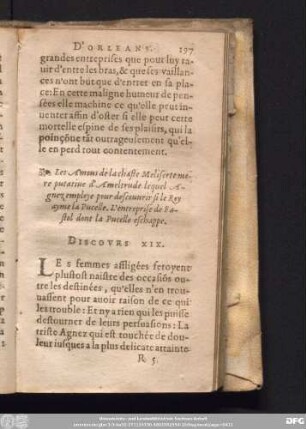 D'ORLEANS. 197
grandes entreprises que pour luy ra-
uir d'entre les bras, & que ses vaillan-
ces n'ont bút que d'entrer en sa pla-
ce: En cette maligne humeur de pen-
sées elle machine ce qu'elle peut in-
uenter affin d'oster si elle peut cette
mortelle espine de ses plaisirs, qui la
poinçõne tãt outrageusement qu'el-
le en perd tout contentement.
Les Amours de la chaste Meliserte me-
re putatiue d'Ameltrude lequel A-
gnez employe pour descouurir si le Roy
ayme la Pucelle. L'entreprise de Fa-
stel dont la Pucelle eschappe.
DISCOVRS XIX.
LEs femmes affligées feroyent
plustost naistre des occasiõs ou-
tre les destinées, qu'elles n'en trou-
uassent pour auoir raison de ce qui
les trouble: Et n'y a rien qui les puisse
destourner de leurs persuasions: La
triste Agnez qui est touchée de dou-
leur iusques a la plus delicate attainte
R 5.